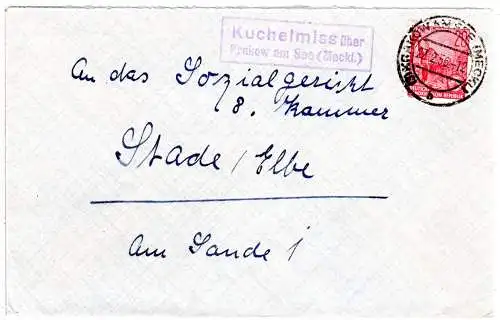 Kuchelmiss über
Krakow am See (Meckl.)
An das Sozialgericht
8. Kammer
Stade / Elbe
Am Sande 1
KRAKOW AM SEE (MECKL)
20